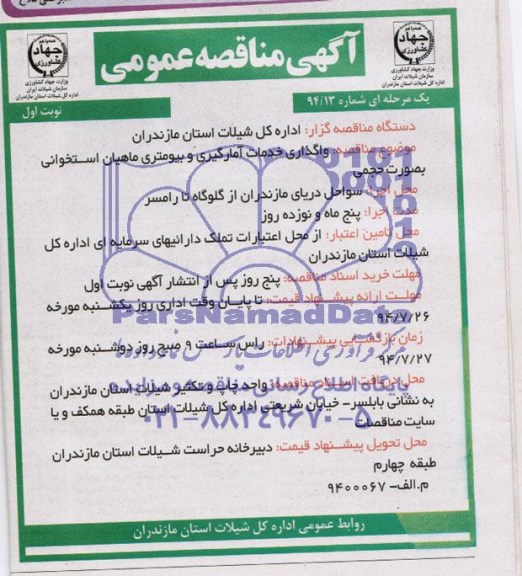 آگهی مناقصه عمومی
جهاد کشاورزی
وزارت جهاد کشاورزی
سازمان شیلات ایران
اداره کل شیلات استان مازندران
جهاد کشاورزی
وزارت جهاد کشاورزی
سازمان شیلات ایران
اداره کل شیلات استان مازندران
یک مرحله ای شماره ۹۴/۱۳
نوبت اول
دستگاه مناقصه گزار: اداره کل شیلات استان مازندران
موضوع مناقصه: واگذاری خدمات آمارگیری و بیومتری ماهیان استخوانی
بصورت حجمی
محل اجرا: سواحل دریای مازندران از گلوگاه تا رامسر
مدت اجرا: پنج ماه و نوزده روز
محل تامین اعتبار: از محل اعتبارات تملک دارائیهای سرمایه ای اداره کل
شیلات استان مازندران
مهلت خرید اسناد مناقصه: پنج روز پس از انتشار آگهی نوبت اول
مهلت ارائه پیشنهاد قیمت: تا پایان وقت اداری روز یکشنبه مورخه
۹۴/۷/۲۶
ParsNamadData
زمان بازگشایی پیشنهادات: راس ساعت ۹ صبح روز دوشنبه مورخه
۹۴/۷/۲۷
محل دریافت اسناد مناقصه: واحد چاپ و تکثیر شیلات استان مازندران
به نشانی بابلسر- خیابان شریعتی اداره کل شیلات استان طبقه همکف و یا
سایت مناقصات
۰۲۱-۸۸۳۴۹۶۷۰-۵
محل تحویل پیشنهاد قیمت: دبیرخانه حراست شیلات استان مازندران
طبقه چهارم
م.الف- ۹۴۰۰۰۶۷
روابط عمومی اداره کل شیلات استان مازندران